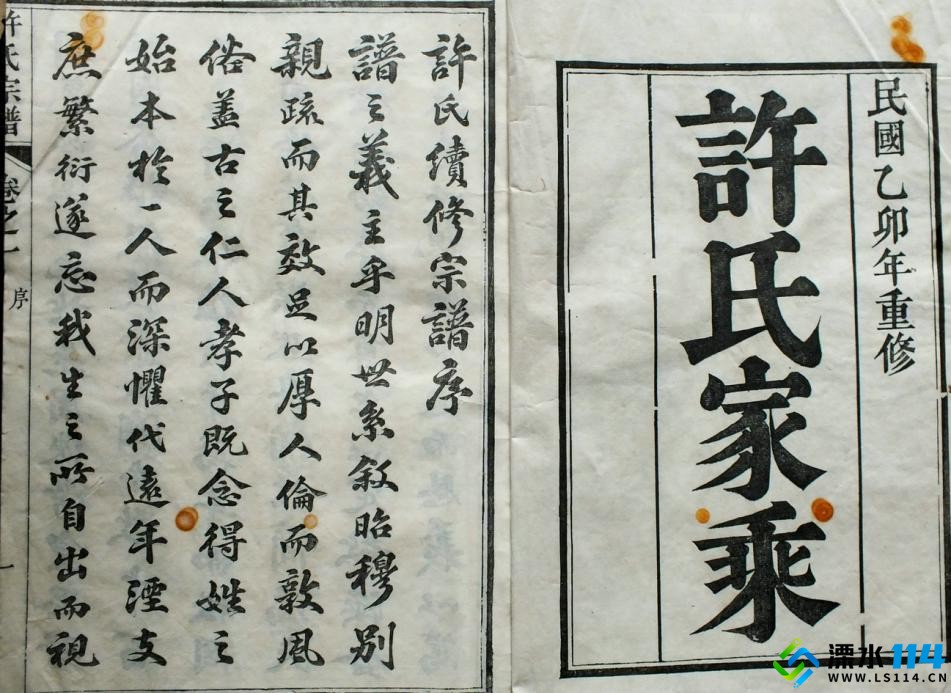 民國乙卯年重修
許氏家乘
許氏續修宗譜序
譜之義主乎明世系敘昭穆別
親疏而其效足以厚人倫而敦風
俗蓋古之仁人孝子既念得姓之
始本於一人而深懼代遠年湮支
庶繁衍遂忘我生之所自出而視
許氏宗譜
卷之一
序
一
溧水114
WWW.LS114.CN